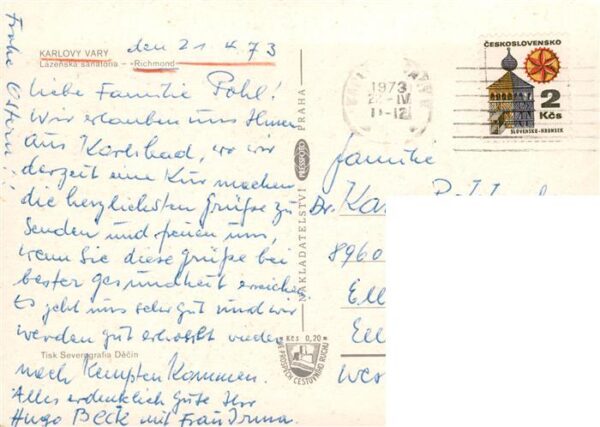 Frohe Ostern!
KARLOVY VARY den 21 4 73
Lázeňská sanatoria – »Richmond«
Liebe Familie Pohl!
Wir erlauben uns Ihnen
aus Karlsbad, wo wir
derzeit eine Kur machen
die herzlichsten Grüße zu
senden und freuen uns,
wenn Sie diese Grüße bei
bester gesundheit erreichen.
Es geht uns sehr gut und wir
werden gut erholt wieder
Tisk Severografia Děčín
nach Kempten Kommen.
Alles erdenklich gute Ihr
Hugo Beck mit Frau Irma.
NAKLADATELSTVÍ PRESSFOTO PRAHA
Kčs 0,20
VE PROSPĚCH CESTOVNÍHO RUCHU
1973
11-12
ČESKOSLOVENSKO
2
Kčs
SLOVENSKO-HRONSEK
Familie
Dr.
8960